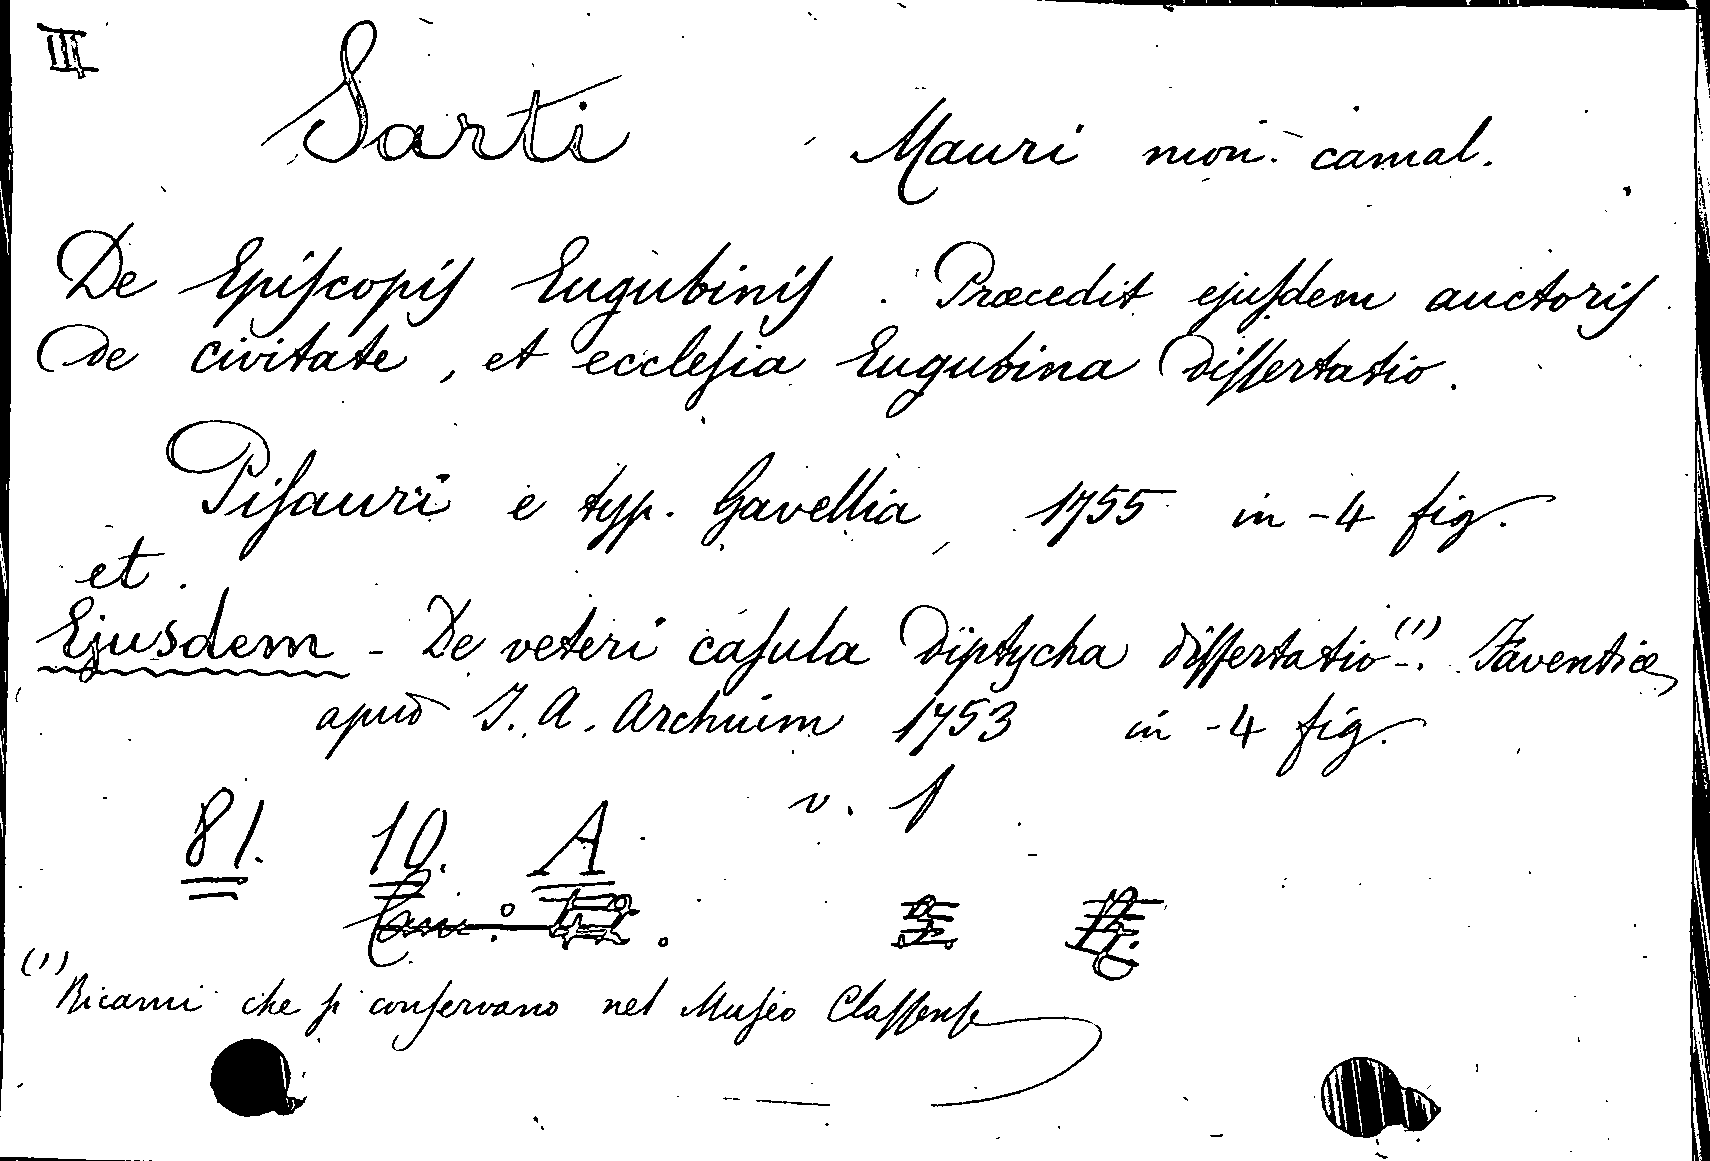 III
Sarti Mauri mon. camal.
De Epiſcopiſ Eugubiniſ. Præcedit ejuſdem auctoriſ
de civitate, et eccleſia Eugubina diſſertatio.
Piſauri e typ. Gavellia 1755 in-4 fig.
et
Ejusdem - De veteri caſula diptycha diſſertatio (1). Faventiæ
apud J. A. Archium 1753 in-4 fig.
v. 1
81. 10. A
(1) Ricami che ſi conſervano nel Muſeo Claſſenſe